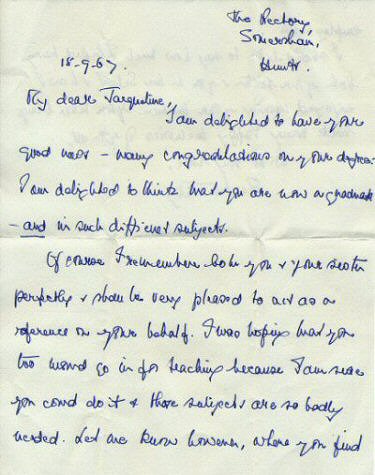 The Rectory,
Somersham,
Hunts.
18-9-67.
My dear Jacqueline,
I am delighted to have your
good news - many congratulations on your degree.
I am delighted to think that you are now a graduate
- and in such difficult subjects.
Of course I remember both you & your sister
perfectly & shall be very pleased to act as a
reference on your behalf. I was hoping that you
too would go in for teaching because I am sure
you could do it & those subjects are so badly
needed. Let me know however, where you find